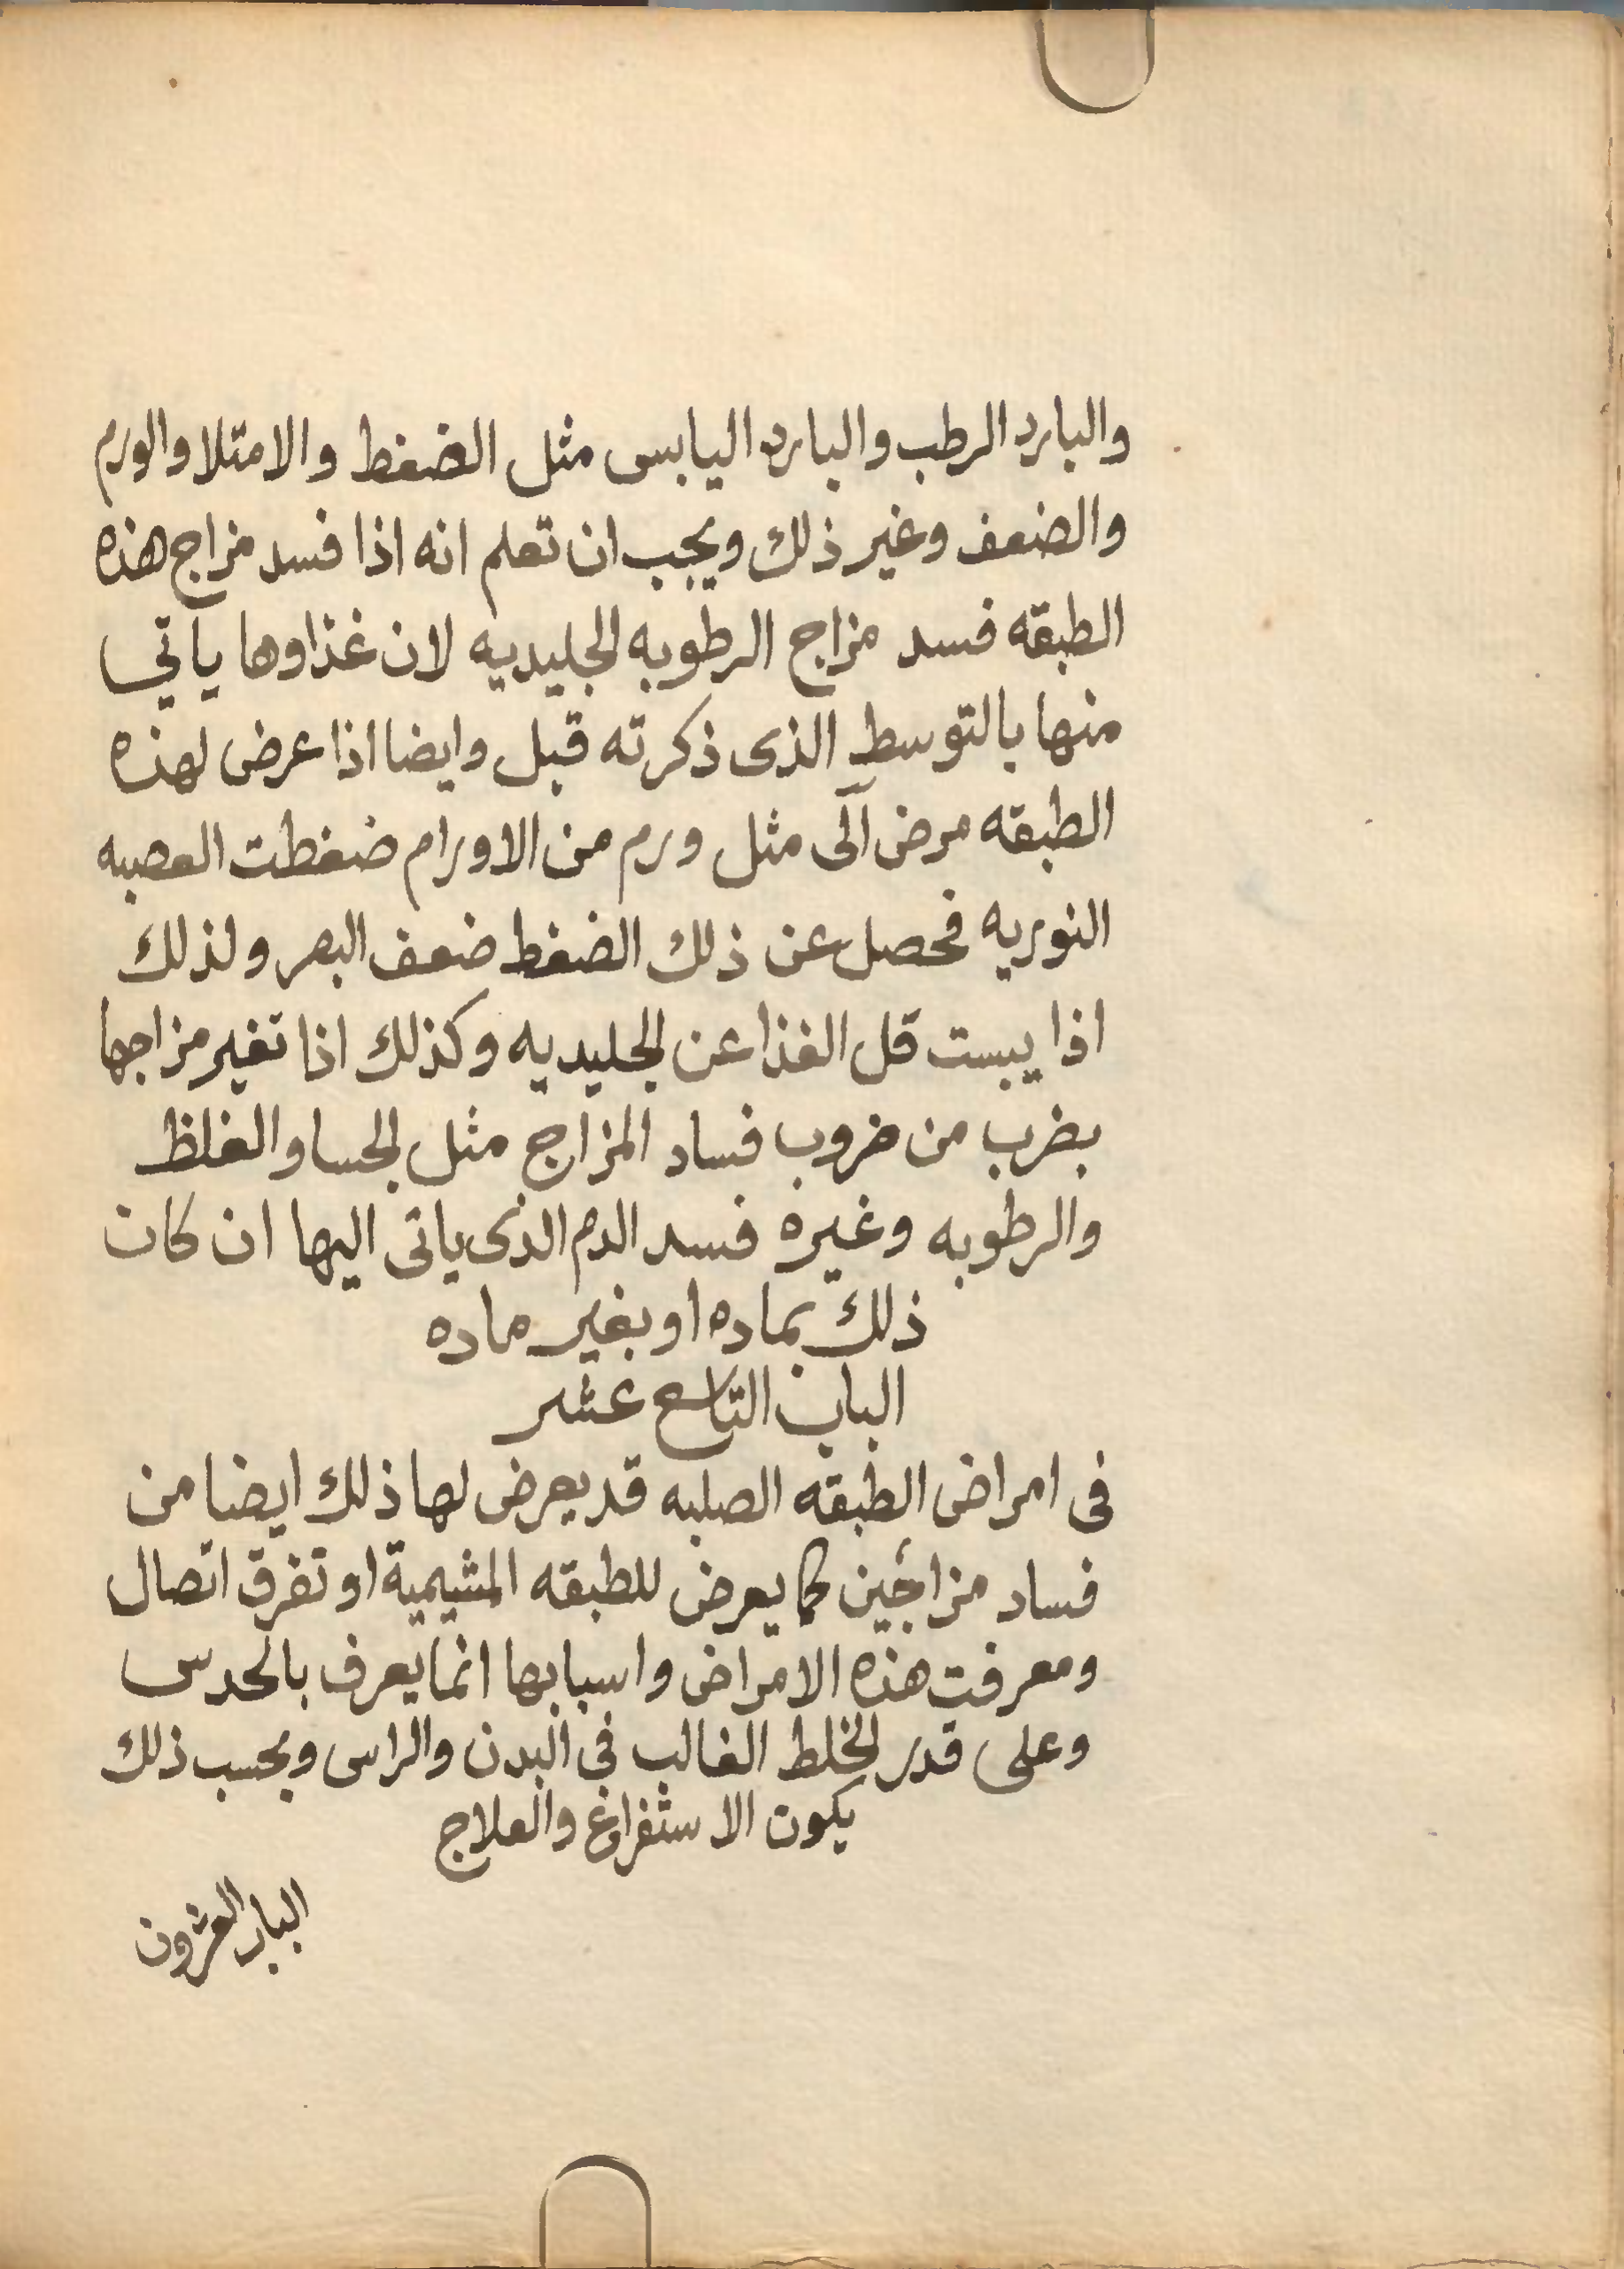 والبارد الرطب والبارد اليابس مثل الضغط والامتلا والورم
والضعف وغير ذلك ويجب ان تعلم انه اذا فسد مزاج هذه
الطبقه فسد مزاج الرطوبه الجليديه لان غذاوها ياتي
منها بالتوسط الذى ذكرته قبل وايضا اذا عرض لهذه
الطبقه مرض آلى مثل ورم من الاورام ضغطت العصبه
النوريه فحصل عن ذلك الضغط ضعف البصر ولذلك
اذا يبست قل الغذا عن الجليديه وكذلك اذا تغير مزاجها
بضرب من ضروب فساد المزاج مثل الجسا والغلظ
والرطوبه وغيره فسد الدم الذى ياتى اليها ان كان
ذلك بماده او بغير ماده
الباب التاسع عشر
فى امراض الطبقه الصلبه قد يعرض لها ذلك ايضا من
فساد مزاجين كما يعرض للطبقه المشيمية او تفرق اتصال
ومعرفت هذه الامراض واسبابها انما يعرف بالحدس
وعلى قدر الخلط الغالب فى البدن والراس وبحسب ذلك
يكون الاستفراغ والعلاج
الباب العشرون